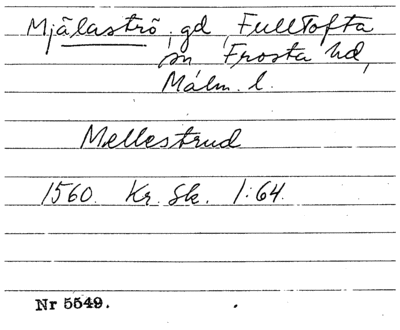 Mjälaströ, gd, Fulltofta
sn Frosta hd,
Malm. l.
Mellestrud
1560. Kr. Sk. 1:64.
Nr 5549.